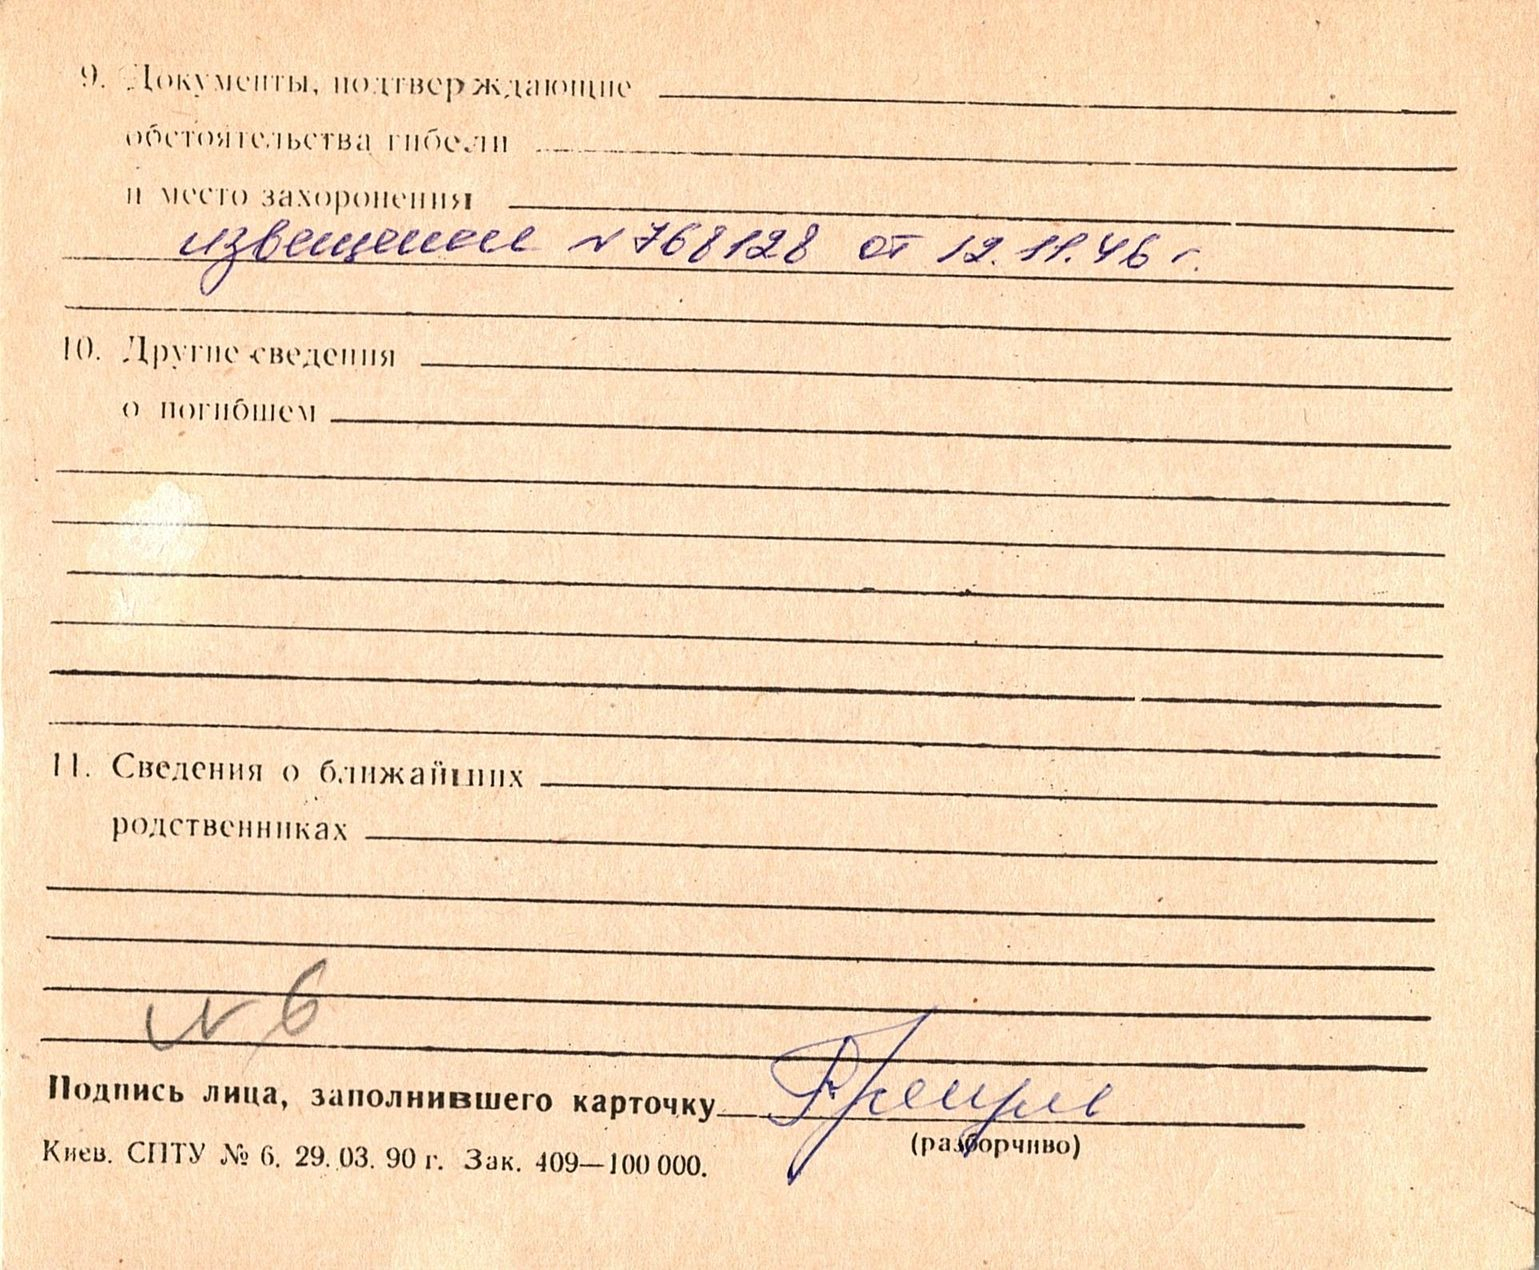 9. Документы, подтверждающие
обстоятельства гибели
и место захоронения
извещение № 768128 от 12.11.46 г.
10. Другие сведения
о погибшем
11. Сведения о ближайших
родственниках
№ 6
Подпись лица, заполнившего карточку
(разборчиво)
Киев. СПТУ № 6. 29. 03. 90 г. Зак. 409—100 000.